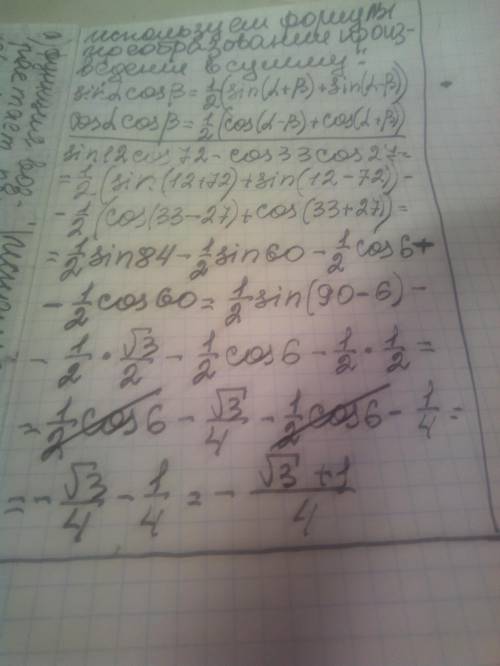 используем формулы
преобразования произ-
ведения в сумму:
sinαcosβ = 1/2(sin(α+β)+sin(α-β))
cosαcosβ = 1/2(cos(α-β)+cos(α+β))
sin12cos72-cos33cos27=
=1/2(sin(12+72)+sin(12-72))-
-1/2(cos(33-27)+cos(33+27)=
=1/2sin84-1/2sin60-1/2cos6+
-1/2cos60=1/2sin(90-6)-
-1/2·√3/2-1/2cos6-1/2·1/2=
=1/2cos6-√3/4-1/2cos6-1/4=
=-√3/4-1/4=-(√3+1)/4